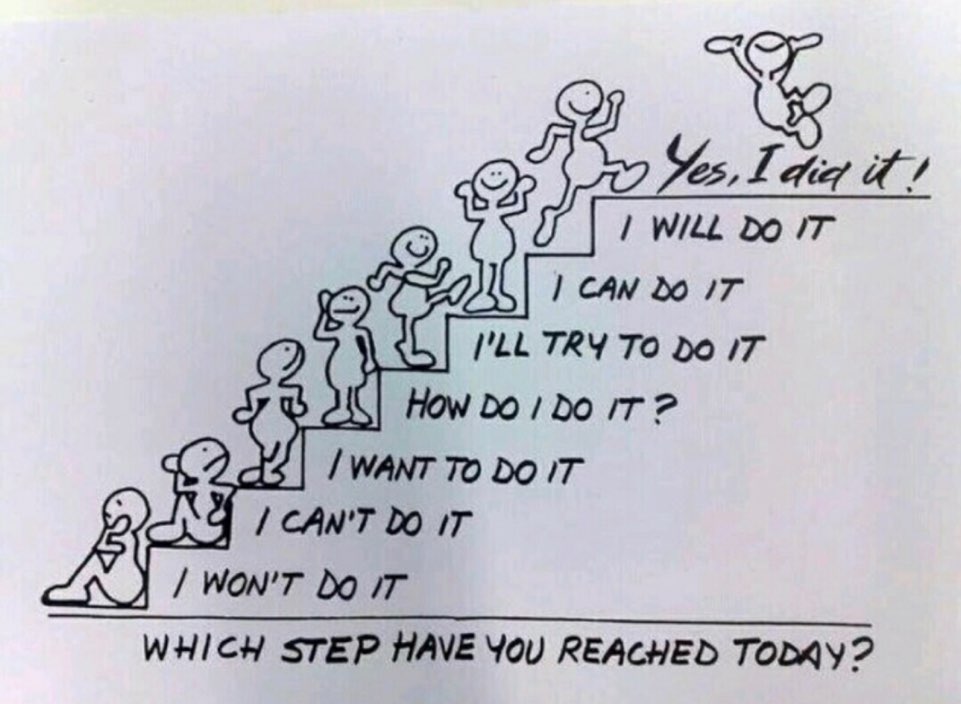 Yes, I did it!
I WILL DO IT
I CAN DO IT
I'LL TRY TO DO IT
HOW DO I DO IT?
I WANT TO DO IT
I CAN'T DO IT
I WON'T DO IT
WHICH STEP HAVE YOU REACHED TODAY?